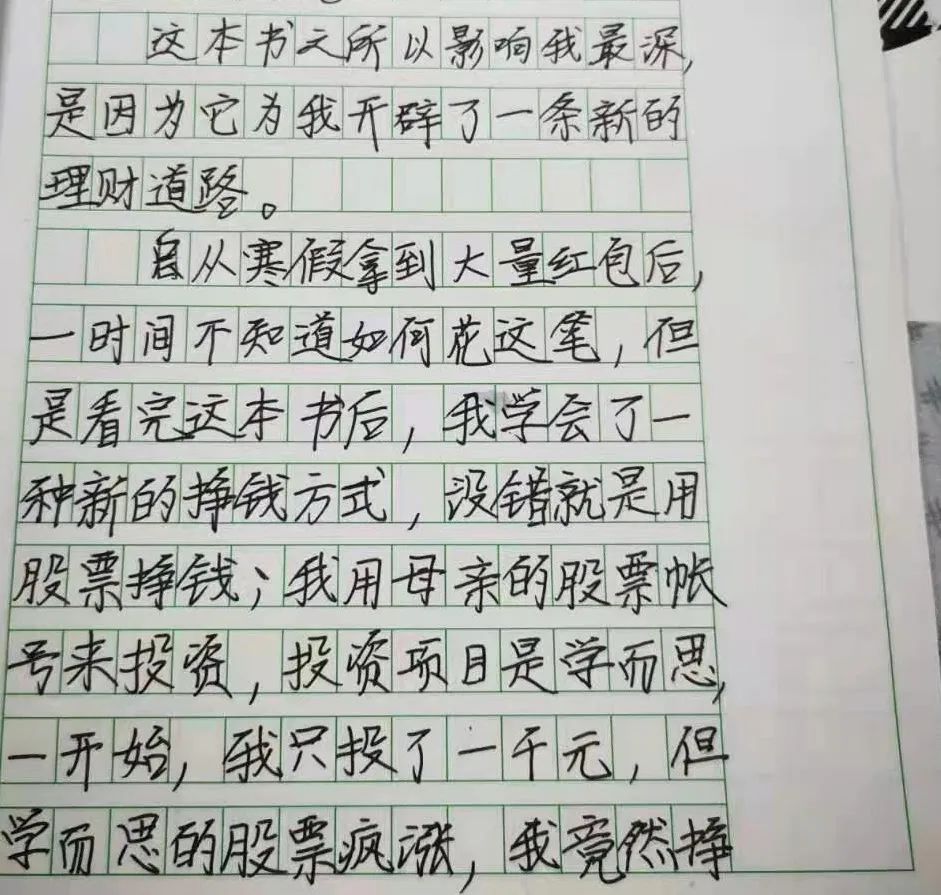 这本书之所以影响我最深,
是因为它为我开辟了一条新的
理财道路。
自从寒假拿到大量红包后,
一时间不知道如何花这笔,但
是看完这本书后,我学会了一
种新的挣钱方式,没错就是用
股票挣钱;我用母亲的股票帐
号来投资,投资项目是学而思,
一开始,我只投了一千元,但
学而思的股票疯涨,我竟然挣